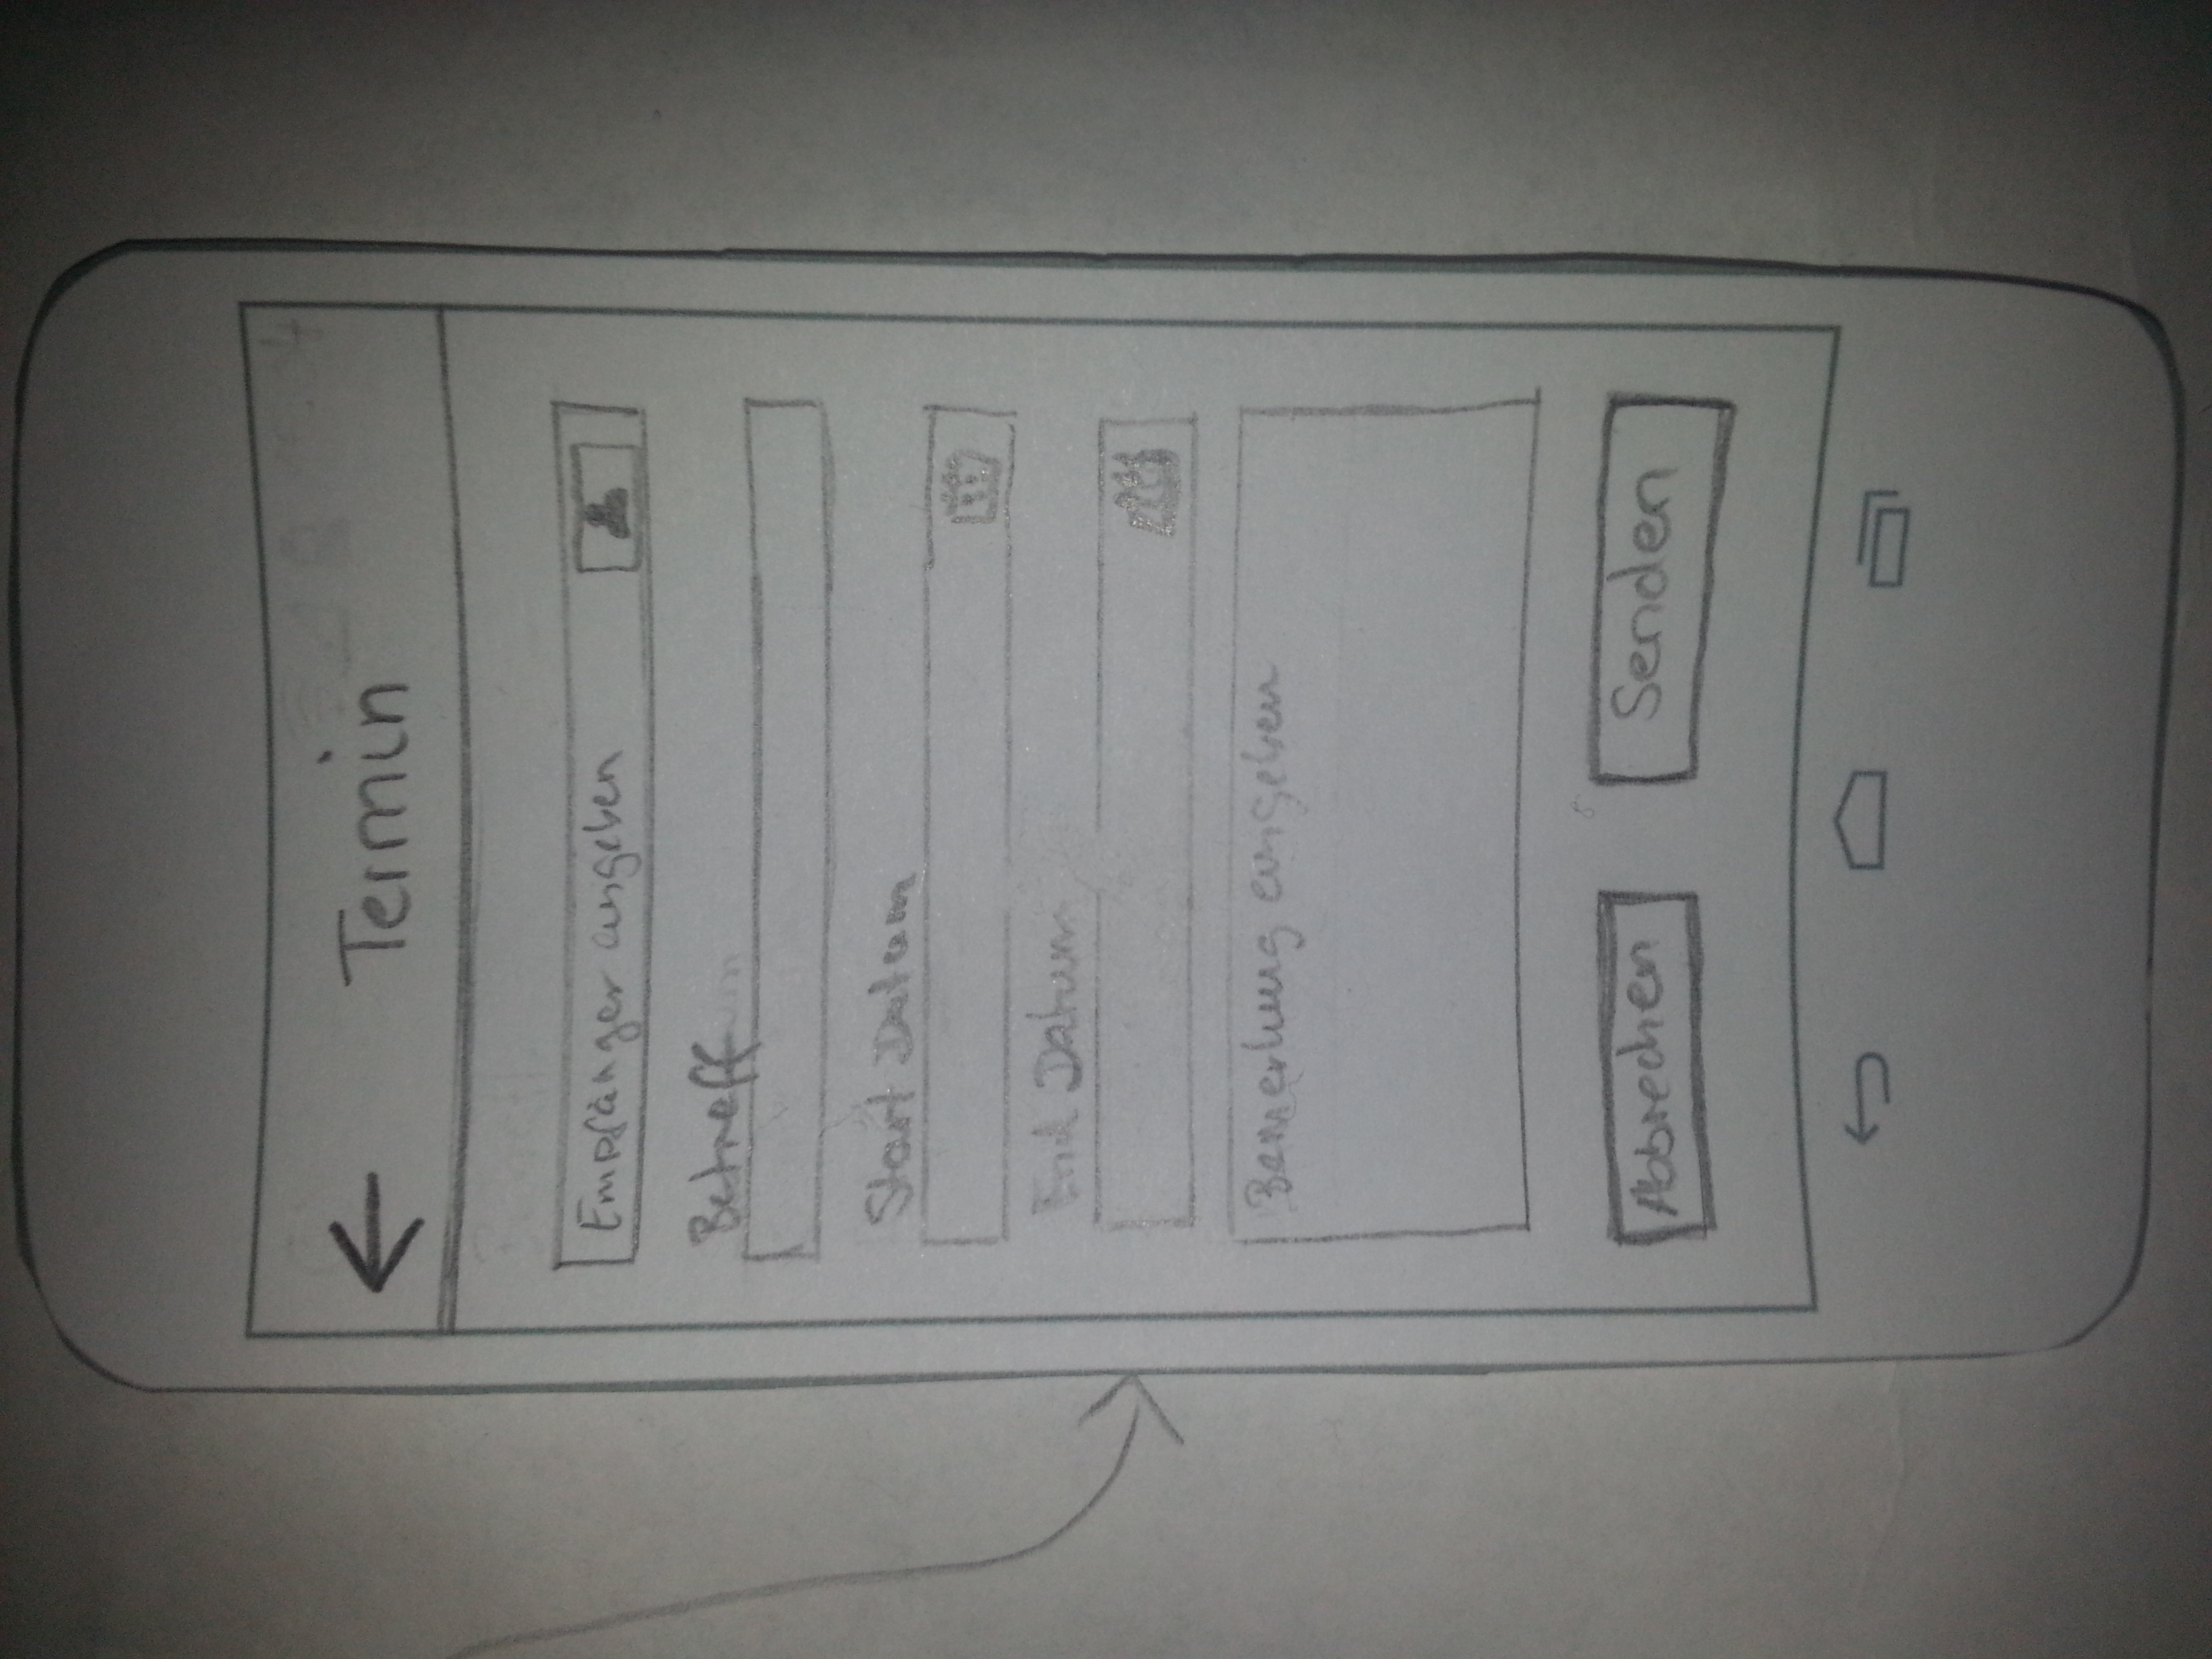 Termin
Empfänger angeben
Betreff
Start Datum
End Datum
Bemerkung angeben
Abbrechen
Senden